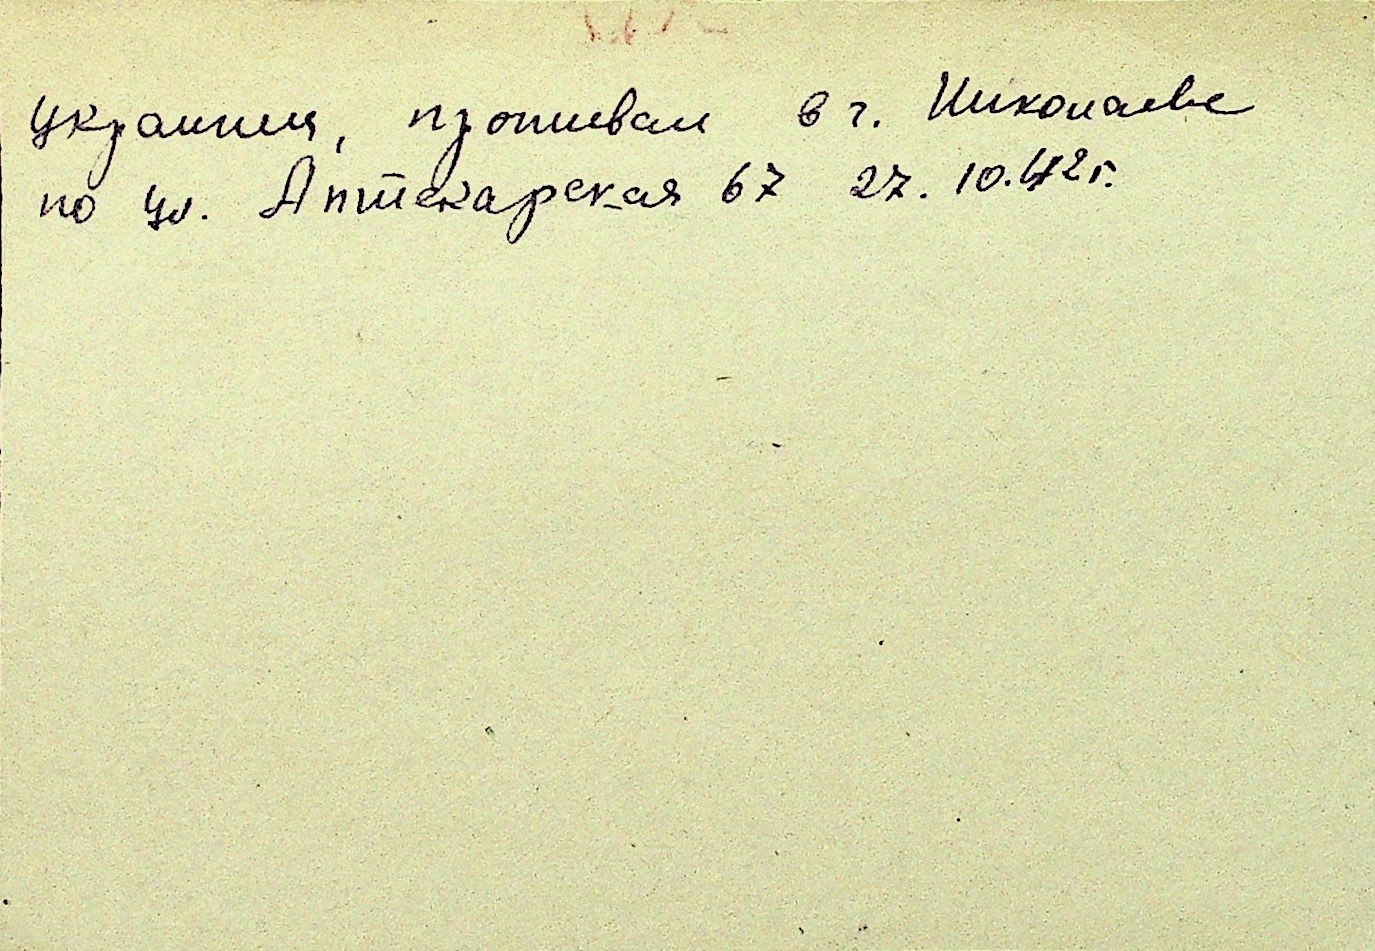 украинец, проживал в г. Николаеве
по ул. Аптекарская 67 27.10.42 г.